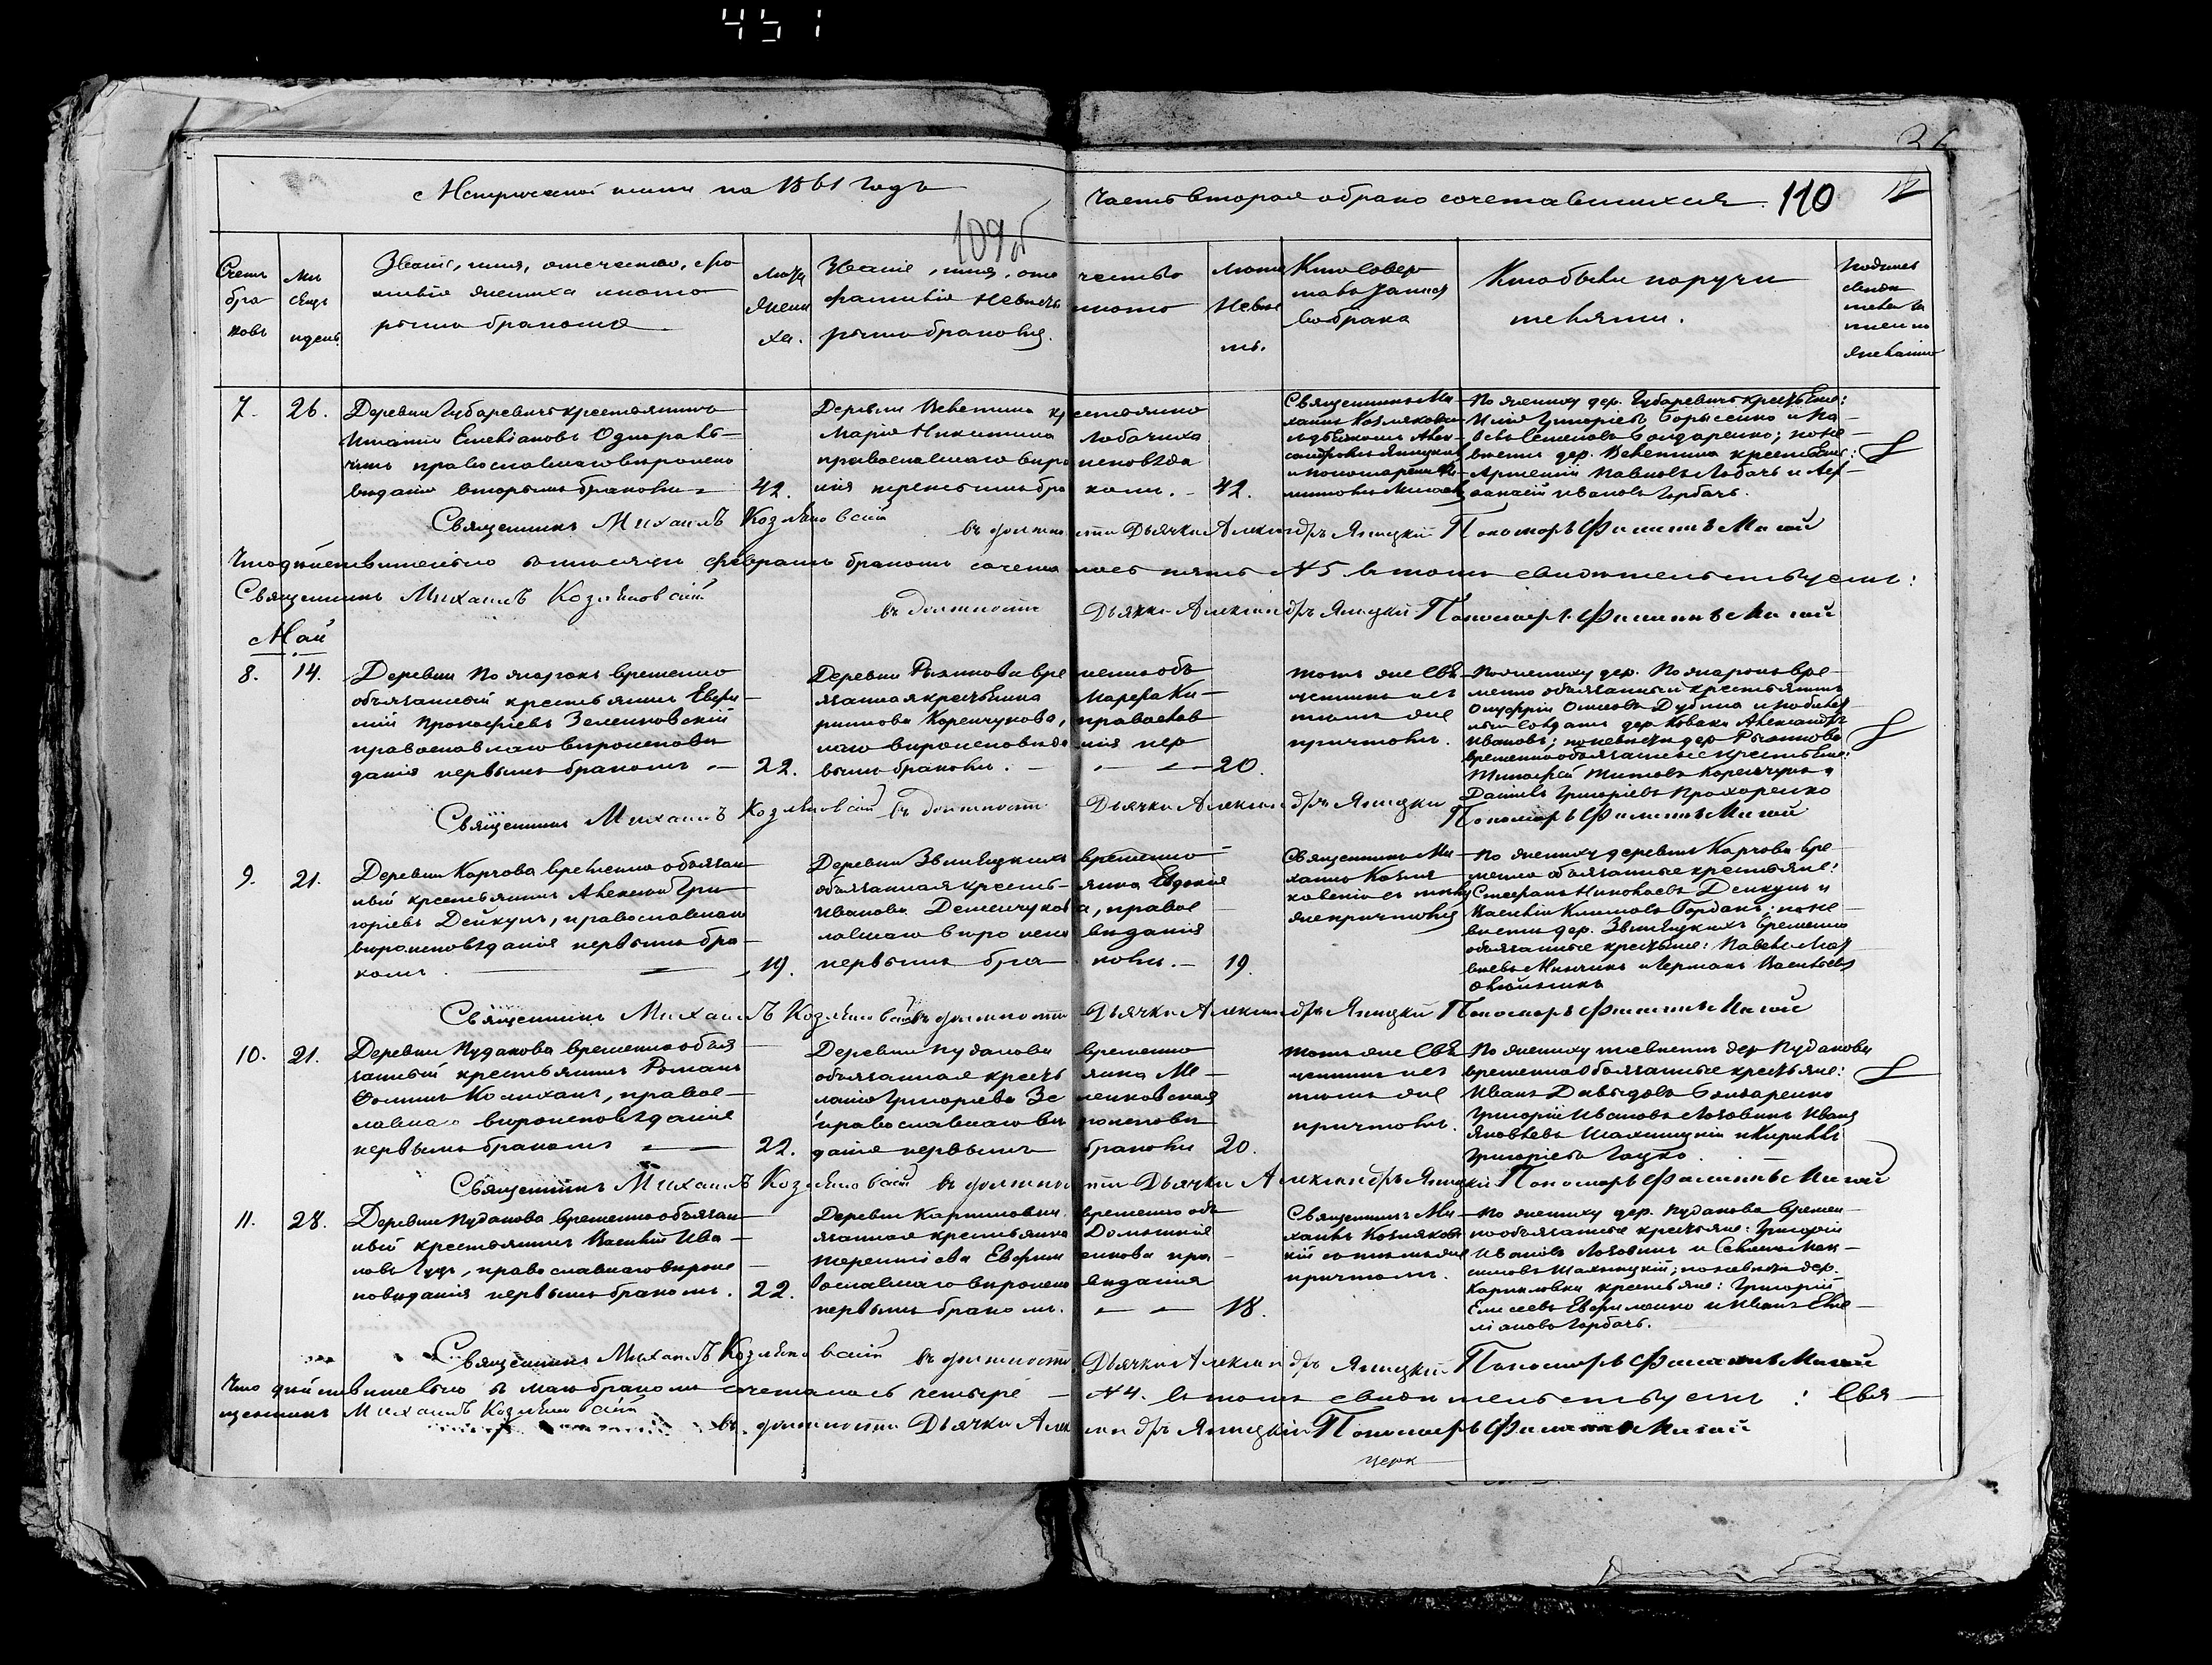 451
Метрической книги на 1861 годъ
Часть вторая о бракосочетавшихся. 110
109об
Счетъ браковъ
Мѣсяцъ и день
Званіе, имя, отчество, фа
милія жениха и кото
рымъ бракомъ
Лѣта жени
ха.
Званіе, имя, оте чество
фамилія невѣсты и кото
рымъ бракомъ.
Лѣта
невѣс
ты.
Кто совер
шалъ таинс
во брака
Кто были поручи
тели.
7. 26.
Деревни Губаревичъ крестьянинъ
Игнатій Емеліановъ
православнаго вѣроиспо
вѣданія вторымъ бракомъ 42.
Деревни Велетина крестьянка
Марія Никитина Лобачиха
православнаго вѣро исповѣда
нія первымъ бра комъ. 42.
Священникъ Ми
хаилъ Козляковскі
По жениху дер. Губаревичъ крестьяне:
Григорьевъ Борисенко и Па
велъ Семеновъ Бондаренко; по не
вѣсте дер. Велетина крестьяне:
Артемій Павловъ Лобачъ и Аф
анасій Ивановъ Горбачъ.
Священникъ Михаилъ Козляковскій въ должности Дьячка Александръ Яницкій Пономарь Филиппъ Мигай
Что дѣйствительно въ мѣсяцѣ февралѣ бракомъ сочета лось пять №5 въ томъ свидѣтельствуемъ:
Священникъ Михаилъ Козляковскій въ должности Дьячка Александръ Яницкій Пономарь Филиппъ Мигай
Май
8. 14.
Деревни Пожарокъ временно
обязанный крестьянинъ Ефи
мій Прокофіевъ Зеленковскій
православнаго вѣроисповѣ
данія первымъ бракомъ 22.
Деревни вре менно об
язанная крестьянка Марфа Ки
рилова Коренчукова, православ
наго вѣроисповѣда нія пер
вымъ бракомъ. 20.
Тотъ же Свя
щенникъ съ
тѣмъ же
причтомъ.
По жениху дер. Пожарокъ вре
менно обязанный крестьянинъ
Онуфрій Дубина
дер. Александръ
Ивановъ; по невѣсте дер
временнообязанные крестьяне:
Тимофей Титовъ Коренчукъ и
Даніилъ Григоріевъ Прохоренко
Священникъ Михаилъ Козляковскій въ должности Дьячка Александръ Яницкій
Пономарь Филиппъ Мигай
9. 21.
Деревни Карчова временно обязан
ный крестьянинъ Алексѣй Гри
горіевъ Дейкунъ, православнаго
вѣроисповѣданія первымъ бра
комъ 19.
Деревни Звинящкихъ временно
обязанная кресть янка Евдокія
Иванова Деменчукова, правос
лавнаго вѣро испо вѣданія
первымъ бра комъ. 19.
Священникъ Ми
хаилъ Козля
ковскій съ тѣмъ
же причтомъ
По жениху деревни Карчова вре
менно обязанные крестьяне:
Стефанъ Николаевъ Дейкунъ и
Василій Климовъ Горданъ; по не
вѣсте дер. Звинящкихъ временно
обязанные крестьяне: Павелъ
Минчикъ и Германъ Васильевъ
Священникъ Михаилъ Козляковскій въ должности Дьячка Александръ Яницкій Пономарь Филиппъ Мигай
10. 21.
Деревни Пуданова временно обя
занный крестьянинъ Романъ
Фоминъ православ
наго вѣроисповѣданія
первымъ бракомъ 22.
Деревни Пуданова временно
обязанная кресть янка Ме
ланія Григорьева Зе ленковская
православнаго вѣ роисповѣ
данія первымъ бракомъ 20.
Тотъ же Свя
щенникъ съ
тѣмъ же
причтомъ.
По жениху и невѣсте дер Пуданова
временно обязанные крестьяне:
Иванъ Давыдовъ Бондаренко
Григорій Ивановъ Лозовикъ Иванъ
Яковлевъ Шахницкій и Кириллъ
Григорьевъ Гацко.
Священникъ Михаилъ Козляковскій въ должности Дьячка Александръ Яницкій Пономарь Филиппъ Мигай
11. 28.
Деревни Пуданова временнообязан
ный крестьянинъ Василій Ива
новъ Гуцъ, православнаго вѣроис
повѣданія первымъ бракомъ. 22.
Деревни Карпиловки временно об
язанная крестьянка Домникія
Терентіева Ефрем енкова пра
вославнаго вѣроиспо вѣданія
первымъ бракомъ. 18.
Священникъ Ми
хаилъ Козляковс
кій съ тѣмъ же
причтомъ.
По жениху дер. Пуданова времен
нообязанные крестьяне: Григорій
Ивановъ Лозовикъ и Мак
симовъ Шахницкій; по невѣсте дер.
Карпиловки крестьяне: Григорій
Елисеевъ Ефременко и Иванъ Еме
ліановъ Горбачъ.
Священникъ Михаилъ Козляковскій въ должности Дьячка Александръ Яницкій Пономарь Филиппъ Мигай
Что дѣйствительно въ маѣ бракомъ сочеталось четыре №4. въ томъ свидѣтельствуемъ: Свя
щенникъ Михаилъ Козляковскій въ должности Дьячка Александръ Яницкій Пономарь Филиппъ Мигай
церк